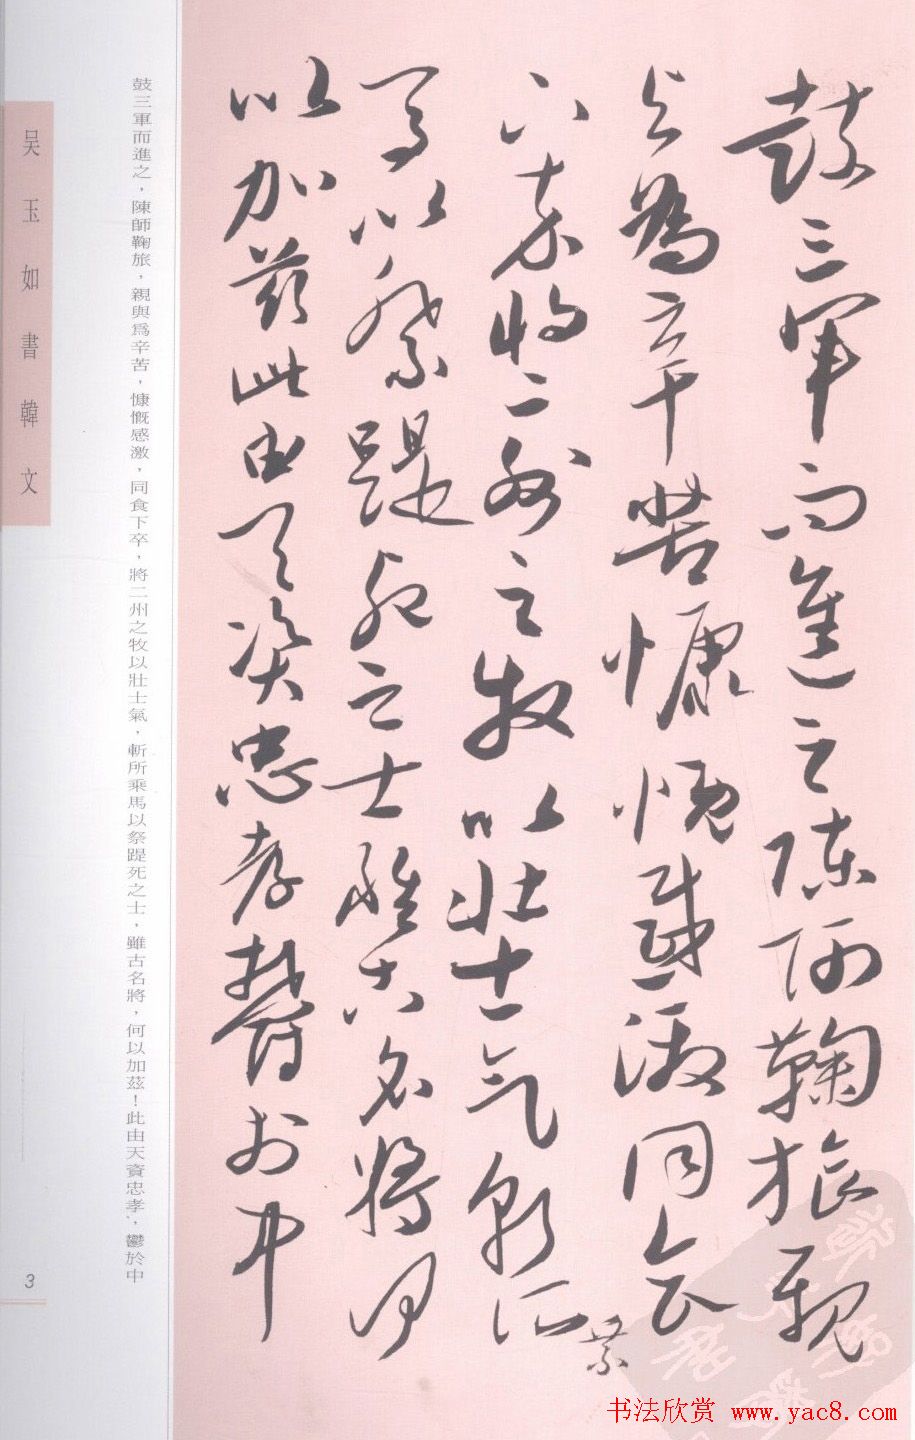 鼓三軍而進之陳師鞠旅親
与為辛苦慷慨感激同食
下卒將二州之牧以壯士气斬所乘
馬以祭踶死之士雖古名將何
以加茲此由天資忠孝鬱於中
鼓三軍而進之，陳師鞠旅，親與爲辛苦，慷慨感激，同食下卒，將二州之牧以壯士氣，斬所乘馬以祭踶死之士，雖古名將，何以加茲！此由天資忠孝，鬱於中
吴玉如書韓文
3
书法欣赏 www.yac8.com